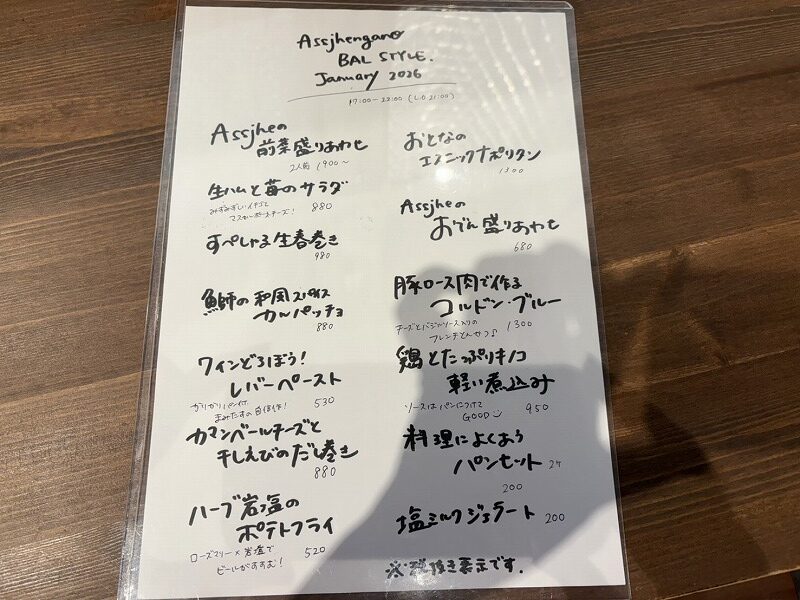 Assjhengano
BAL STYLE.
January 2026
17:00〜22:00 (L.O 21:00)
Assjheの
前菜盛りあわせ
2人前 1900〜
生ハムと苺のサラダ
みずみずしいイチゴと
マスカルポーネチーズ!
880
すぺしゃる生春巻き
980
鰤の和風スパイス
カルパッチョ
880
ワインどろぼう!
レバーペースト
かりかりパン付
まみたすの自信作!
530
カマンベールチーズと
干しえびのだし巻き
880
ハーブ岩塩の
ポテトフライ
ローズマリー×岩塩で
ビールがすすむ!
520
おとなの
エスニックナポリタン
1300
Assjheの
おでん盛りあわせ
680
豚ロース肉で作る
コルドン・ブルー
チーズとバジルソース入りの
フレンチとんかつ♪
1300
鶏とたっぷりキノコ
軽い煮込み
ソースはパンにつけて
GOOD
950
料理によくあう
パンセット 2ケ
200
塩ミルクジェラート 200
※税抜き表示です.